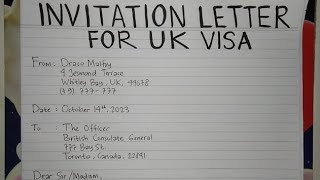 INVITATION LETTER
FOR UK VISA
From: Draco Malfoy
8 Jesmond Terrace
Whitley Bay, UK, 44678
(+9). 777-777
Date: October 14th, 2023
To : The Officer
British Consulate General
777 Bay St.
Toronto, Canada, 22891
Dear Sir/Madam,